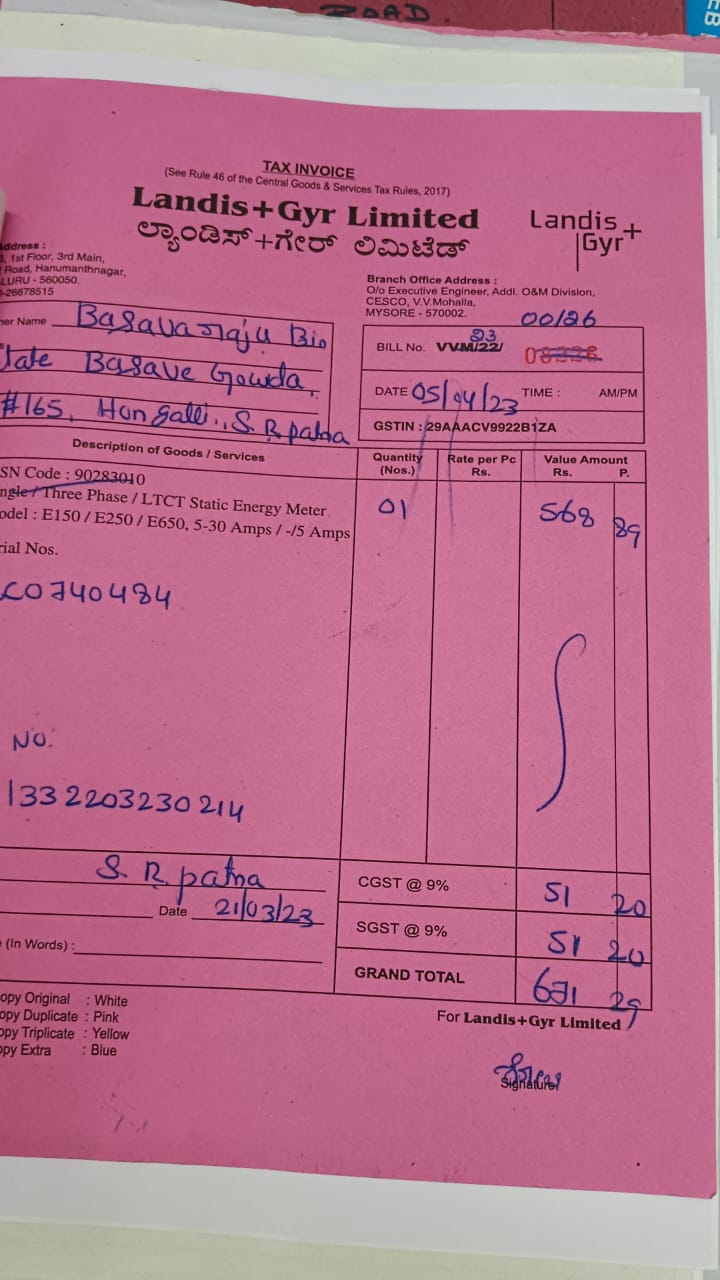 ROAD
TAX INVOICE
(See Rule 46 of the Central Goods & Services Tax Rules, 2017)
Landis+Gyr Limited
ಲ್ಯಾಂಡಿಸ್+ಗೇರ್ ಲಿಮಿಟೆಡ್
Landis+
Gyr
Address :
, 1st Floor, 3rd Main,
Road, Hanumanthnagar,
LURU - 560050.
-26678515
Branch Office Address :
O/o Executive Engineer, Addl. O&M Division,
CESCO, V.V.Mohalla,
MYSORE - 570002.
00/26
ner Name Basavaraju Bio
late Basave Gowda,
#165, Hongalli, S. R patna
23
BILL No. VVM/22/
DATE 05/04/23 TIME : AM/PM
GSTIN : 29AAACV9922B1ZA
Description of Goods / Services
Quantity (Nos.)
Rate per Pc Rs.
Value Amount Rs. P.
SN Code : 90283010
ngle / Three Phase / LTCT Static Energy Meter
odel : E150 / E250 / E650, 5-30 Amps / -/5 Amps
01 568 89
rial Nos.
C0740484
NO.
1332203230214
S. R. patna
Date 21/03/23
(In Words) :
CGST @ 9% 51 20
SGST @ 9% 51 20
GRAND TOTAL 671 29
opy Original : White
opy Duplicate : Pink
opy Triplicate : Yellow
opy Extra : Blue
For Landis+Gyr Limited
Signature